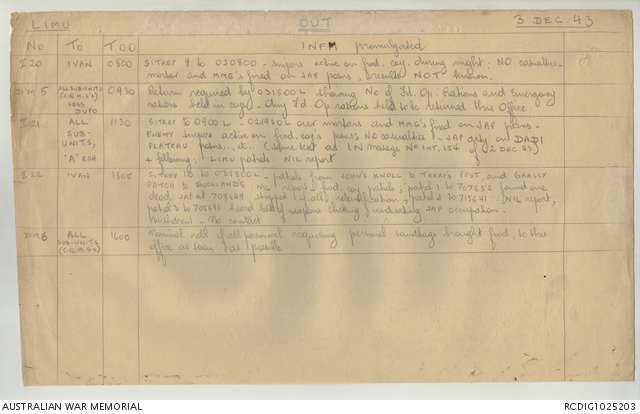 LIMU OUT 3 DEC. 43
No TO T.O.O INFM promulgated
I20 IVAN 0800 SITREP 9 to 030800 - snipers active on fwd. coy. during night. NO casualties.
mortar and MMG's fired on JAP posns, results NOT known.
5 ALL SUB-UNITS (C.Q.M.S's) 0930 Return required by 031800L showing No of Fd. Op. Rations and Emergency
rations held in coys. Any Fd Op rations held to be returned this Office
I21 ALL SUB-UNITS, "A" ECH 1130 SITREP to 0900L - our mortars and MMG's fired on JAP posns -
ENEMY snipers active on fwd. coy's posns, NO casualties - JAP on DADI
PLATEAU posns... etc. (same text as IN message No INT. 154 of 2 DEC 43)
+ following, LIMU patrols NIL report
I22 IVAN SITREP 10 to - patrols from JOHN'S KNOLL & TREVI'S POST, and GRASSY
PATCH & NIL report - fwd. coy patrols, patrol 1 to 707652 found one
dead JAP at 708649 patrol 2 to 715641 - NIL report,
patrol 3 to heard weapons indicating JAP occupation.
Withdrew - No contact
6 ALL SUB-UNITS (C.Q.M.Ss) 1600 Nominal roll of all personnel requiring personal brought fwd. to this
office as soon as possible
AUSTRALIAN WAR MEMORIAL RCDIG1025203